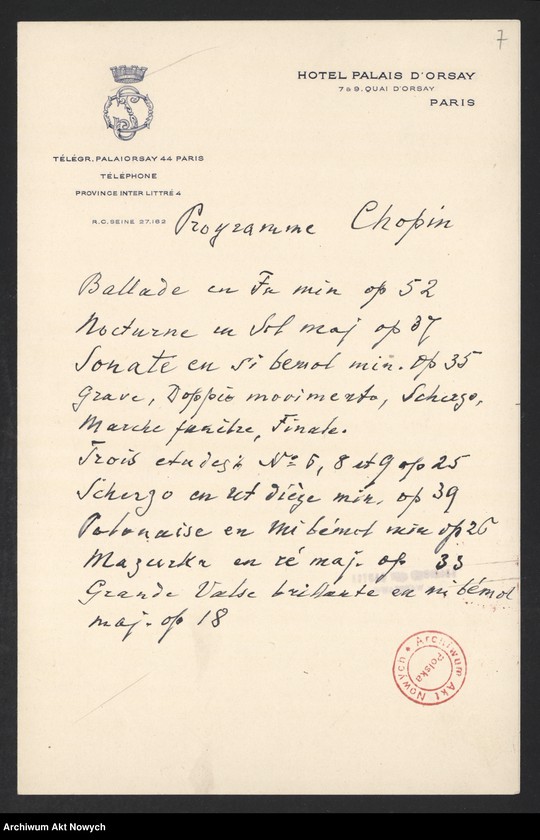 7
HOTEL PALAIS D'ORSAY
7 & 9. QUAI D'ORSAY
PARIS
TÉLÉGR. PALAIORSAY 44 PARIS
TÉLÉPHONE
PROVINCE INTER LITTRÉ 4
R.C. SEINE 27.182
Programme Chopin
Ballade en Fa min op 52
Nocturne en Sol maj op 37
Sonate en si bemol min. op 35
Grave, Doppio movimento, Scherzo,
Marche funèbre, Finale.
Trois etudes No 6, 8 et 9 op 25
Scherzo en ut dièze min. op 39
Polonaise en mi bémol min op 26
Mazurka en ré maj. op 33
Grande Valse brillante en mi bémol
maj. op 18
Archiwum Akt Nowych
Polska
Archiwum Akt Nowych